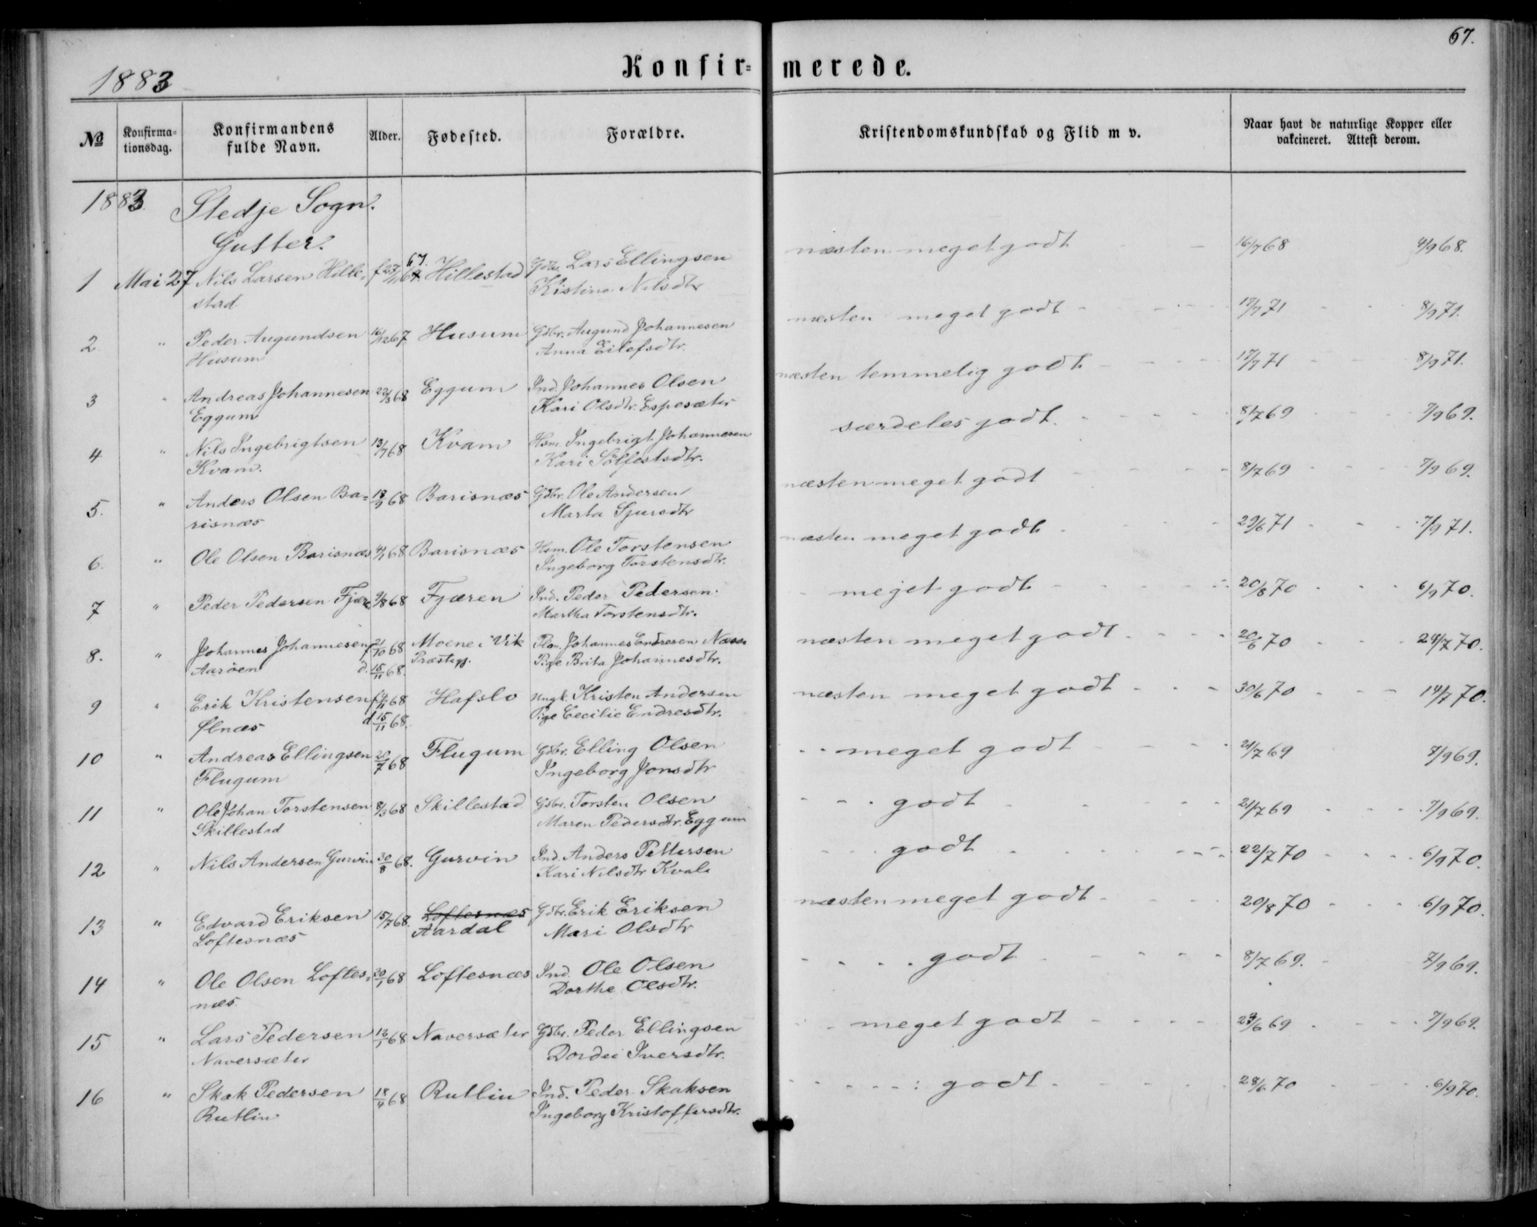 67.
1883
Konfirmerede.
№ Konfirmationsdag. Konfirmandens fulde Navn. Alder. Fødested. Forældre. Kristendomskundskab og Flid m v. Naar havt de naturlige Kopper eller vakcineret. Attest derom.
1883 Stedje Sogn.
Gutter.
1 Mai 27 Nils Larsen Hille- 67. Hillestad Gdbr. Lars Ellingsen næsten meget godt 16/7 68 4/9 68.
stad Kistina Nilsdtr
2 " Peder Augundsen 16/12 67 Husum Gdbr. Augund Johannesen næsten meget godt 17/7 71 8/9 71.
Husum Anna Eilefsdtr.
3 " Andreas Johannesen 22/3 68 Eggum Ind. Johannes Olsen næsten temmelig godt 17/7 71 8/9 71.
Eggum Kari Olsdtr. Espesæter
4 " Nils Ingebrigtsen 13/7 68 Kvam Hsm. Ingebrigt Johannesen særdeles godt. 8/7 69 7/9 69.
Kvam. Kari Sølfestsdtr.
5. " Anders Olsen Ba- 68 Barisnæs Gdbr. Ole Andersen næsten meget godt 8/7 69 7/9 69.
risnæs Marta Sjursdtr
6. " Ole Olsen Barisnæs 68 Barisnæs Hsm. Ole Torstensen næsten meget godt 29/6 71 7/9 71.
Ingeborg Torstensdtr.
7 " Peder Pedersen Fjære 68 Fjæren Ind. Peder Pedersen. meget godt 20/8 70 6/9 70.
Martha Torstensdtr.
8. " Johannes Johannesen f 21/10 68 Moene i Vik Johannes Endresen Næss næsten meget godt 20/6 70 24/7 70.
Aarøen d. 15/11 68. Præstegj. Pige Brita Johannesdtr.
9 " Erik Kristensen 68 Hafslo Ungk. Kristen Andersen næsten meget godt 30/6 70 14/7 70.
Ølnæs d 15/11 68. Pige Cecilie Endresdtr.
10 " Andreas Ellingsen 20/7 68 Flugum Gdbr. Elling Olsen meget godt 21/7 69 8/9 69.
Flugum Ingeborg Jonsdtr
11 " Ole Johan Torstensen 8/3 68 Skillestad Gdbr. Torsten Olsen godt 21/7 69 7/9 69.
Skillestad Maren Pedersdtr. Eggum
12 " Nils Andersen Gurvin 30/8 68. Gurvin Ind. Anders Pettersen godt 22/7 70 6/9 70.
Kari Nilsdtr Kvale
13 " Edvard Eriksen 15/7 68. Loftesnæs Gdbr. Erik Eriksen næsten meget godt 20/8 70 6/9 70.
Loftesnæs Aardal Mari Olsdtr
14 " Ole Olsen Loftes- 20/1 68 Loftesnæs Ind. Ole Olsen godt 8/7 69. 7/9 69.
næs. Dorthe Olsdtr.
15 " Lars Pedersen 12/1 68 Naversæter Gdbr. Peder Ellingsen meget godt 29/6 69 7/9 69.
Naversæter Dordei Iversdtr.
16 " Skak Pedersen 18/9 68 Rutlin Ind. Peder Skaksen godt 28/6 70 6/9 70.
Rutlin Ingeborg Kristoffersdtr.